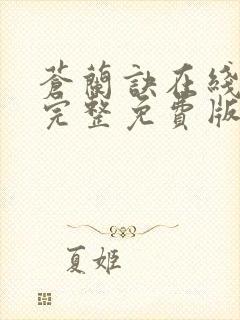 蒼蘭訣在綫
完整免費版
夏姬